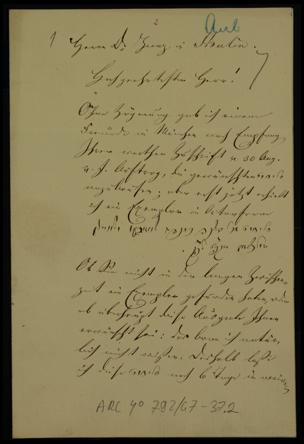 Aub
1 Herrn Dr Zunz in Berlin.
Hochgeehrtester Herr!
Ohne Zögerung gab ich einem
Freunde in München nach Empfang
Ihrer werthen Zuschrift v. 30 Aug.
d. J. Auftrag, die gewünschten
; aber erst jetzt erhielt
ich ein Exemplar in
Ob Sie nicht in der langen Zwischen-
zeit ein Exemplar gefunden haben, oder
ob überhaupt diese Ausgabe Ihnen
erwünscht sei: das kann ich natür-
lich nicht wissen. Deshalb lasse
ich diese noch 6 Tage in meinen
ARC 4o 792/G7-37.2